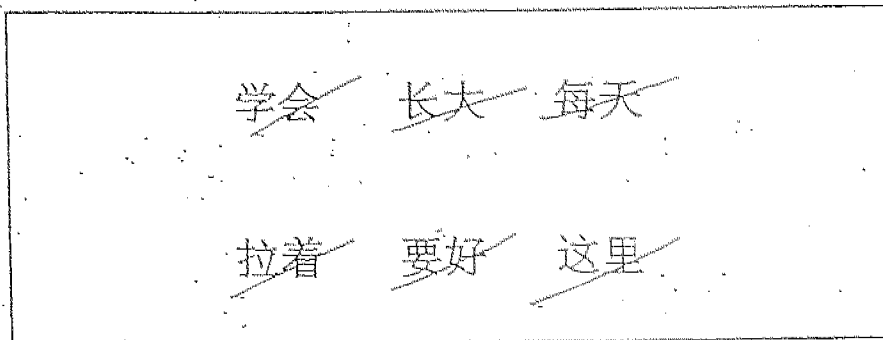 学会 长大 每天
拉着 要好 这里